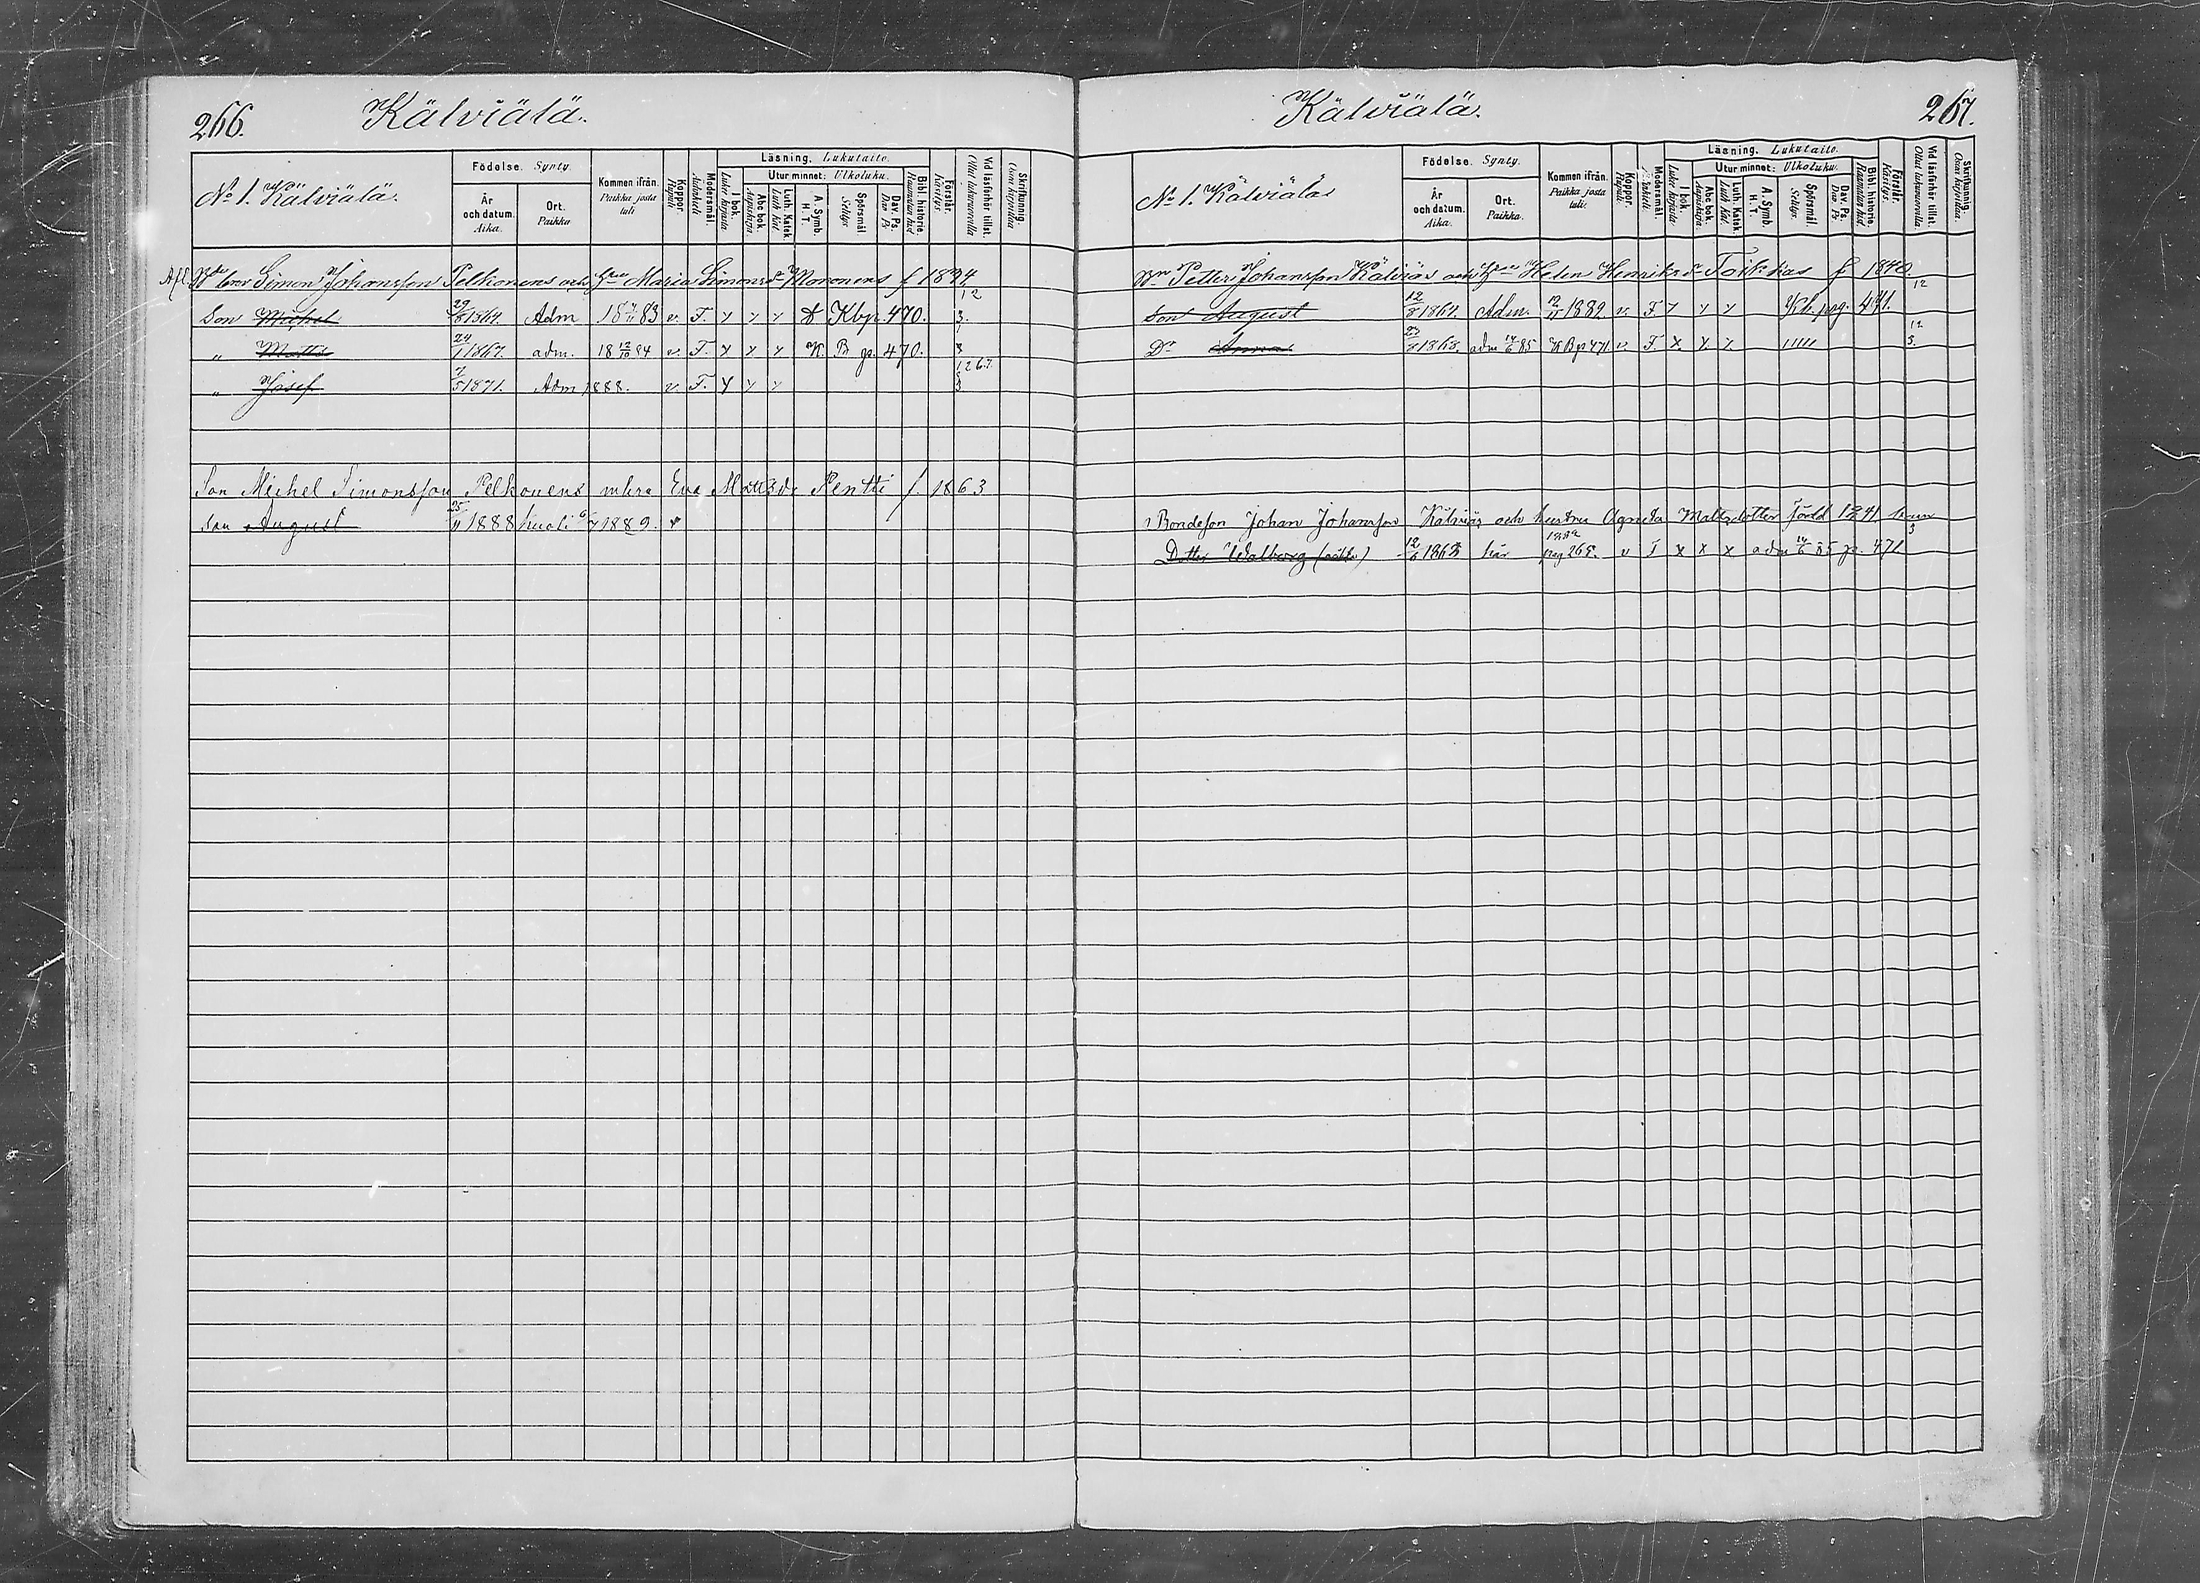 266. Kälviälä.
No 1. Kälviälä.
Födelse. Synty.
År och datum. Aika.
Ort. Paikka
Kommen ifrån. Paikka josta tuli
Koppor. Rupuli.
Modersmål. Äidinkieli
Läsning. Lukutaito.
I bok. Lukee kirjasta
Utur minnet: Ulkoluku.
Abc bok. Aapiskirja
Luth. Katek. Luth. Kat.
A. Symb. H. T.
Spörsmål. Selitys
Dav. Ps. Dav. Ps
Bibl. historie. Raamatun hist
Förstår. Käsitys
Vid läsförhör tillst. Ollut lukuvuorolla
Skrifkunnig. Osaa kirjoittaa
Afl. Simon Johansson Pelkonens och Maria Simonsdr Mononens f 1824.
Son Michel 29/8 1864. Adm 1883 v. F. x x x Kbp. 470. 3.
" Matts 24/1 1867. adm. 18 12/10 84 v. F. x x x K. B p. 470. 3
" Josef 7/5 1871. Adm 1888. v. F. x x x 3
Son Michel Simonsson Pelkonens enkra Eva Mattsdr Pentti f. 1863
son August 25/11 1888 kuoli 6/7 1889. v
Kälviälä. 267.
No 1. Kälviälä
Födelse. Synty.
År och datum. Aika.
Ort. Paikka.
Kommen ifrån. Paikka josta tuli:
Koppor. Rupuli.
Modersmål. Äidinkieli.
Läsning. Lukutaito.
I bok. Lukee kirjasta
Utur minnet: Ulkoluku.
Abc bok. Aapiskirja.
Luth. Katek. Luth. Kat.
A. Symb. H. T.
Spörsmål. Selitys.
Dav. Ps. Dav. Ps.
Bibl. historie. Raamatun hist.
Förstår. Käsitys.
Vid läsförhör tillst. Ollut lukuvuorolla
Skrifkunnig. Osaa kirjoittaa.
Bn Petter Johansson Kälviäs och Helen Henriksdr Toikkas f 1840.
Son August Adm. 1882 v. F x x x Kb. pag. 471.
Dr Anna 1865. adm 85 K Bp 471 v. F. x. x. x. 3.
Bondeson Johan Johansson Kälviäs och hustrus Agneta Mattsdotter född 1841 barn
Dotter Walborg 12/6 1863 här 1882 pag 265. v F x x x adm 85 p. 471 3